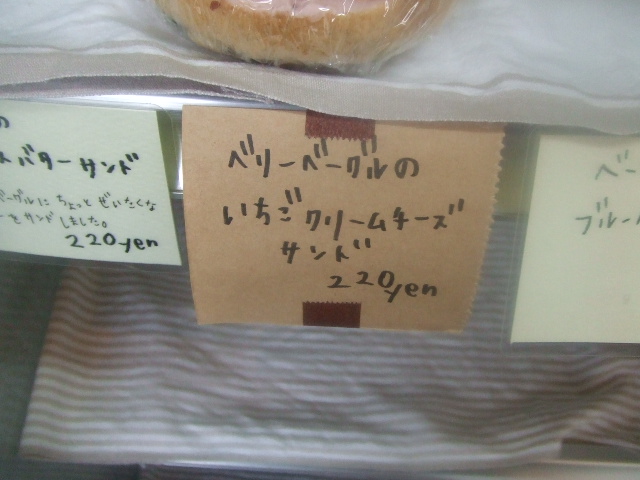 の
バターサンド
ベーグルに ちょっと ぜいたくな
ーをサンドしました。
220yen
ベリーベーグルの
いちごクリームチーズ
サンド
220yen
ベー
ブルー